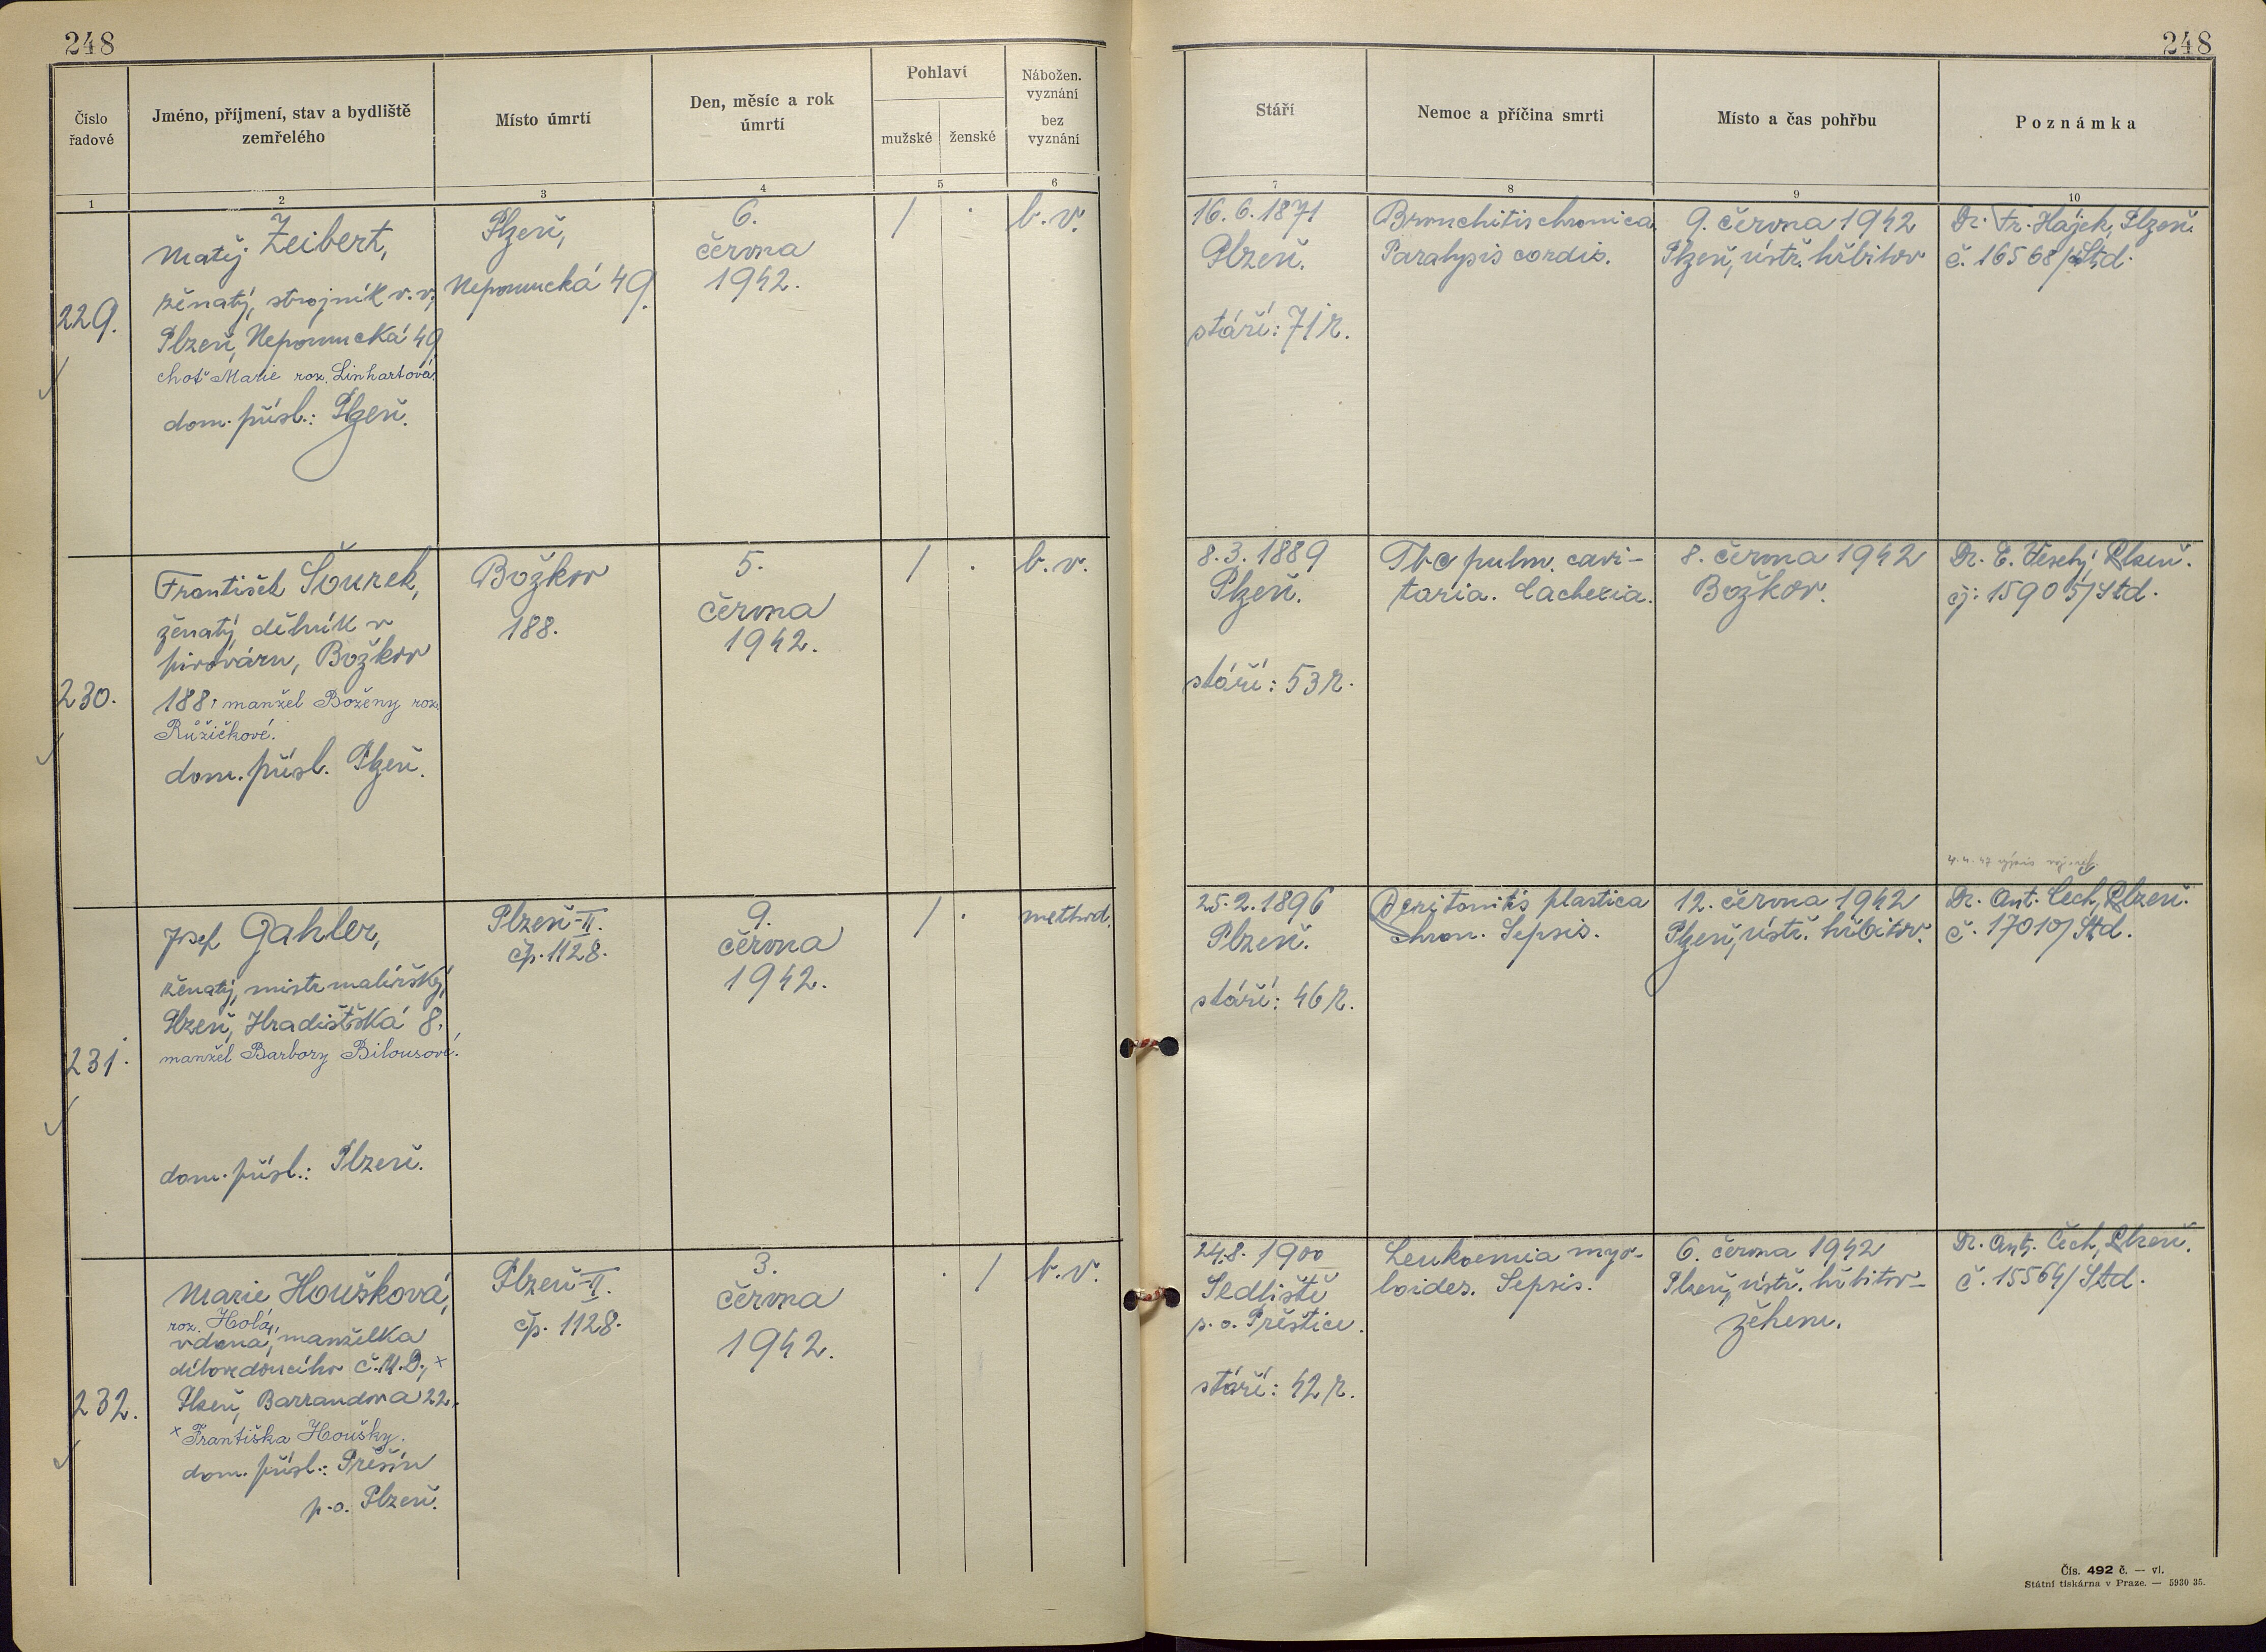 248
248
Číslo řadové
Jméno, příjmení, stav a bydliště zemřelého
Místo úmrtí
Den, měsíc a rok úmrtí
Pohlaví
mužské
ženské
Nábožen. vyznání
bez vyznání
Stáří
Nemoc a příčina smrti
Místo a čas pohřbu
Poznámka
1
2
3
4
5
6
7
8
9
10
229.
Matěj Zeibert,
ženatý, strojník v. v.,
Plzeň, Nepomucká 49
choť Marie roz. Linhartová.
dom. přísl.: Plzeň.
Plzeň,
Nepomucká 49.
6.
června
1942.
/
.
b. v.
16. 6. 1871
Plzeň.
stáří: 71 r.
Bronchitis chronica,
Paralysis cordis.
9. června 1942
Plzeň, ústř. hřbitov
Dr. Fr. Hájek, Plzeň.
č. 16568/Std.
230.
František Šourek,
ženatý, dělník v
pivováru, Božkov
188, manžel Boženy roz.
Růžičkové.
dom. přísl. Plzeň.
Božkov
188.
5.
června
1942.
/
.
b. v.
8. 3. 1889
Plzeň.
stáří: 53 r.
Tbc pulm. cavi-
taria. Cachexia.
8. června 1942
Božkov.
Dr. E. Veselý, Plzeň.
čj: 15905/Std.
4. 4. 47 výpis
231.
Josef Gahler,
ženatý, mistr malířský,
Plzeň, Hradišťská 8,
manžel Barbory Bilousové.
dom. přísl.: Plzeň.
Plzeň-II.
čp. 1128.
9.
června
1942.
/
.
method.
25. 2. 1896
Plzeň.
stáří: 46 r.
Peritonitis plastica
chron. Sepsis.
12. června 1942
Plzeň, ústř. hřbitov.
Dr. Ant. Čech, Plzeň.
č. 17010/Std.
232.
Marie Houšková,
roz. Holá,
vdaná, manželka
dílovedoucího Č.M.D., x
Plzeň, Barrandova 22.
x Františka Houšky.
dom. přísl.: Přešín
p. o. Plzeň.
Plzeň-II.
čp. 1128.
3.
června
1942.
.
/
b. v.
24. 8. 1900
Sedliště
p. o. Přeštice.
stáří: 42 r.
Leukaemia myo-
loides. Sepsis.
6. června 1942
Plzeň, ústř. hřbitov-
žehem.
Dr. Ant. Čech, Plzeň.
č. 15564/Std.
Čís. 492 č. — vl.
Státní tiskárna v Praze. — 5930 35.